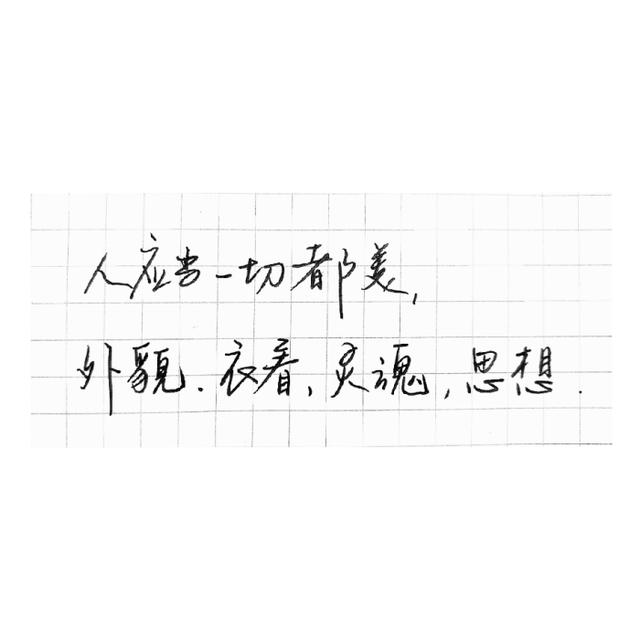 人应当一切都美,
外貌.衣着,灵魂,思想.